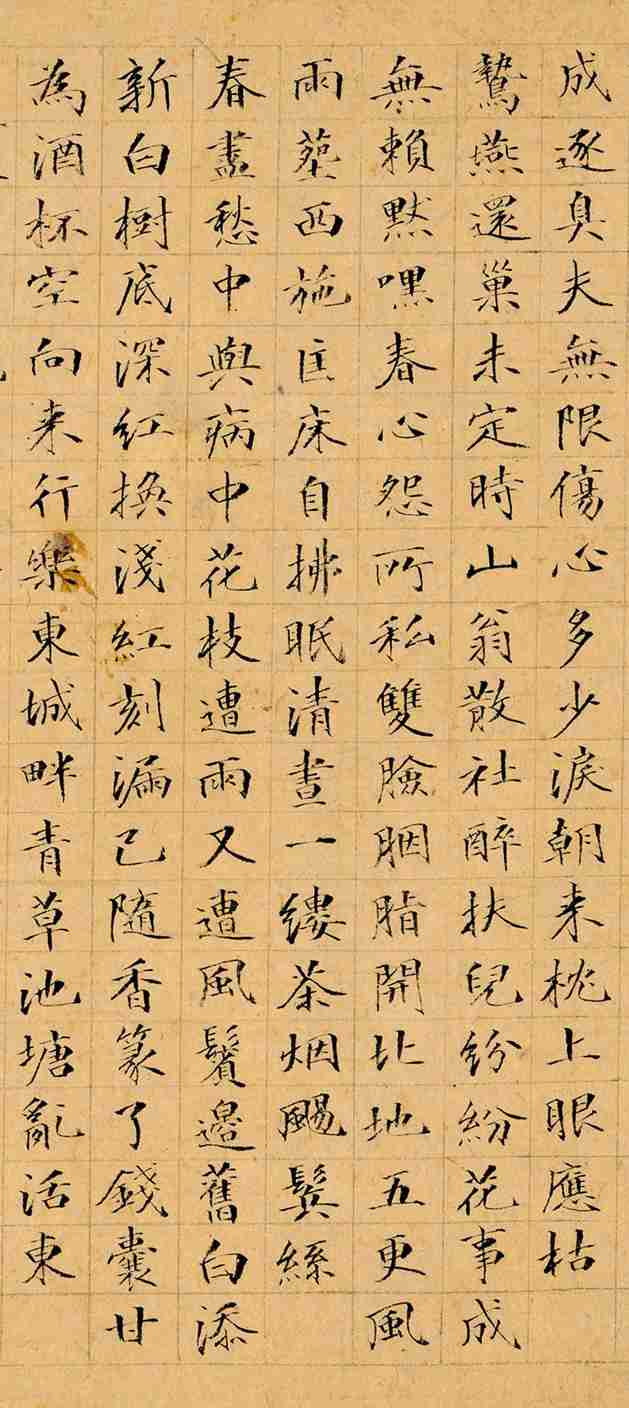 成逐臭夫無限傷心多少淚朝来枕上眼應枯
鷙燕還巢未定時山翁散社醉扶兒紛紛花事成
無賴默嘿春心怨所私雙臉胭脂開北地五更風
雨塟西施匡床自拂眠清晝一縷茶烟颺鬂絲
春盡愁中與病中花枝遭雨又遭風鬢邊舊白添
新白樹底深紅換淺紅刻漏已隨香篆了錢囊甘
為酒杯空向来行樂東城畔青草池塘亂活東